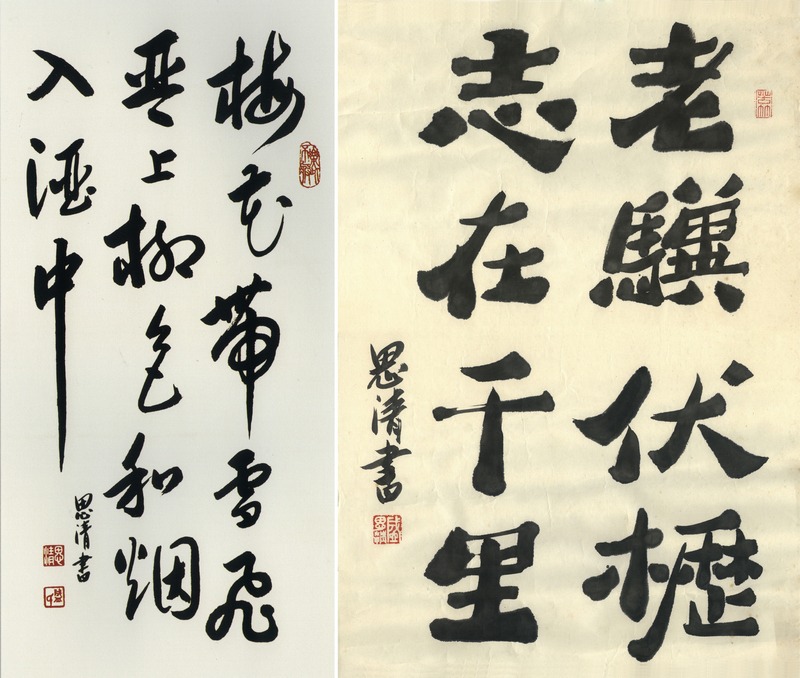 梅花帶雪飛
琴上柳色和烟
入酒中
思清書
老驥伏櫪
志在千里
思清書